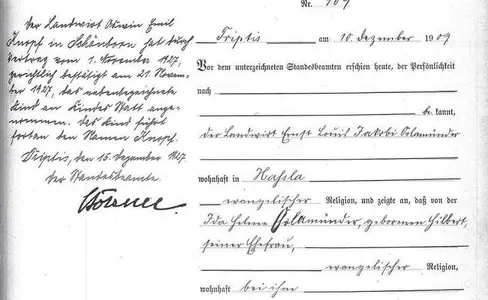 Nr. 109
Der Landwirt Oswin Emil
Knopf in Schönborn hat durch
Vertrag vom 1. November 1927,
gerichtlich bestätigt am 21. Novem-
ber 1927, das nebenbezeichnete
Kind an Kindes Statt ange-
nommen. Das Kind führt
fortan den Namen Knopf.
Triptis, den 15. Dezember 1927
Der Standesbeamte.
Triptis am 10. Dezember 1909
Vor dem unterzeichneten Standesbeamten erschien heute, der Persönlichkeit
nach
be kannt,
der Landwirt Ernst Louis Jakobi Orlamünder
wohnhaft in Hasla
evangelischer Religion, und zeigte an, daß von der
Ida Helene Orlamünder, geborenen Hilbert,
seiner Ehefrau,
evangelischer Religion,
wohnhaft bei ihm